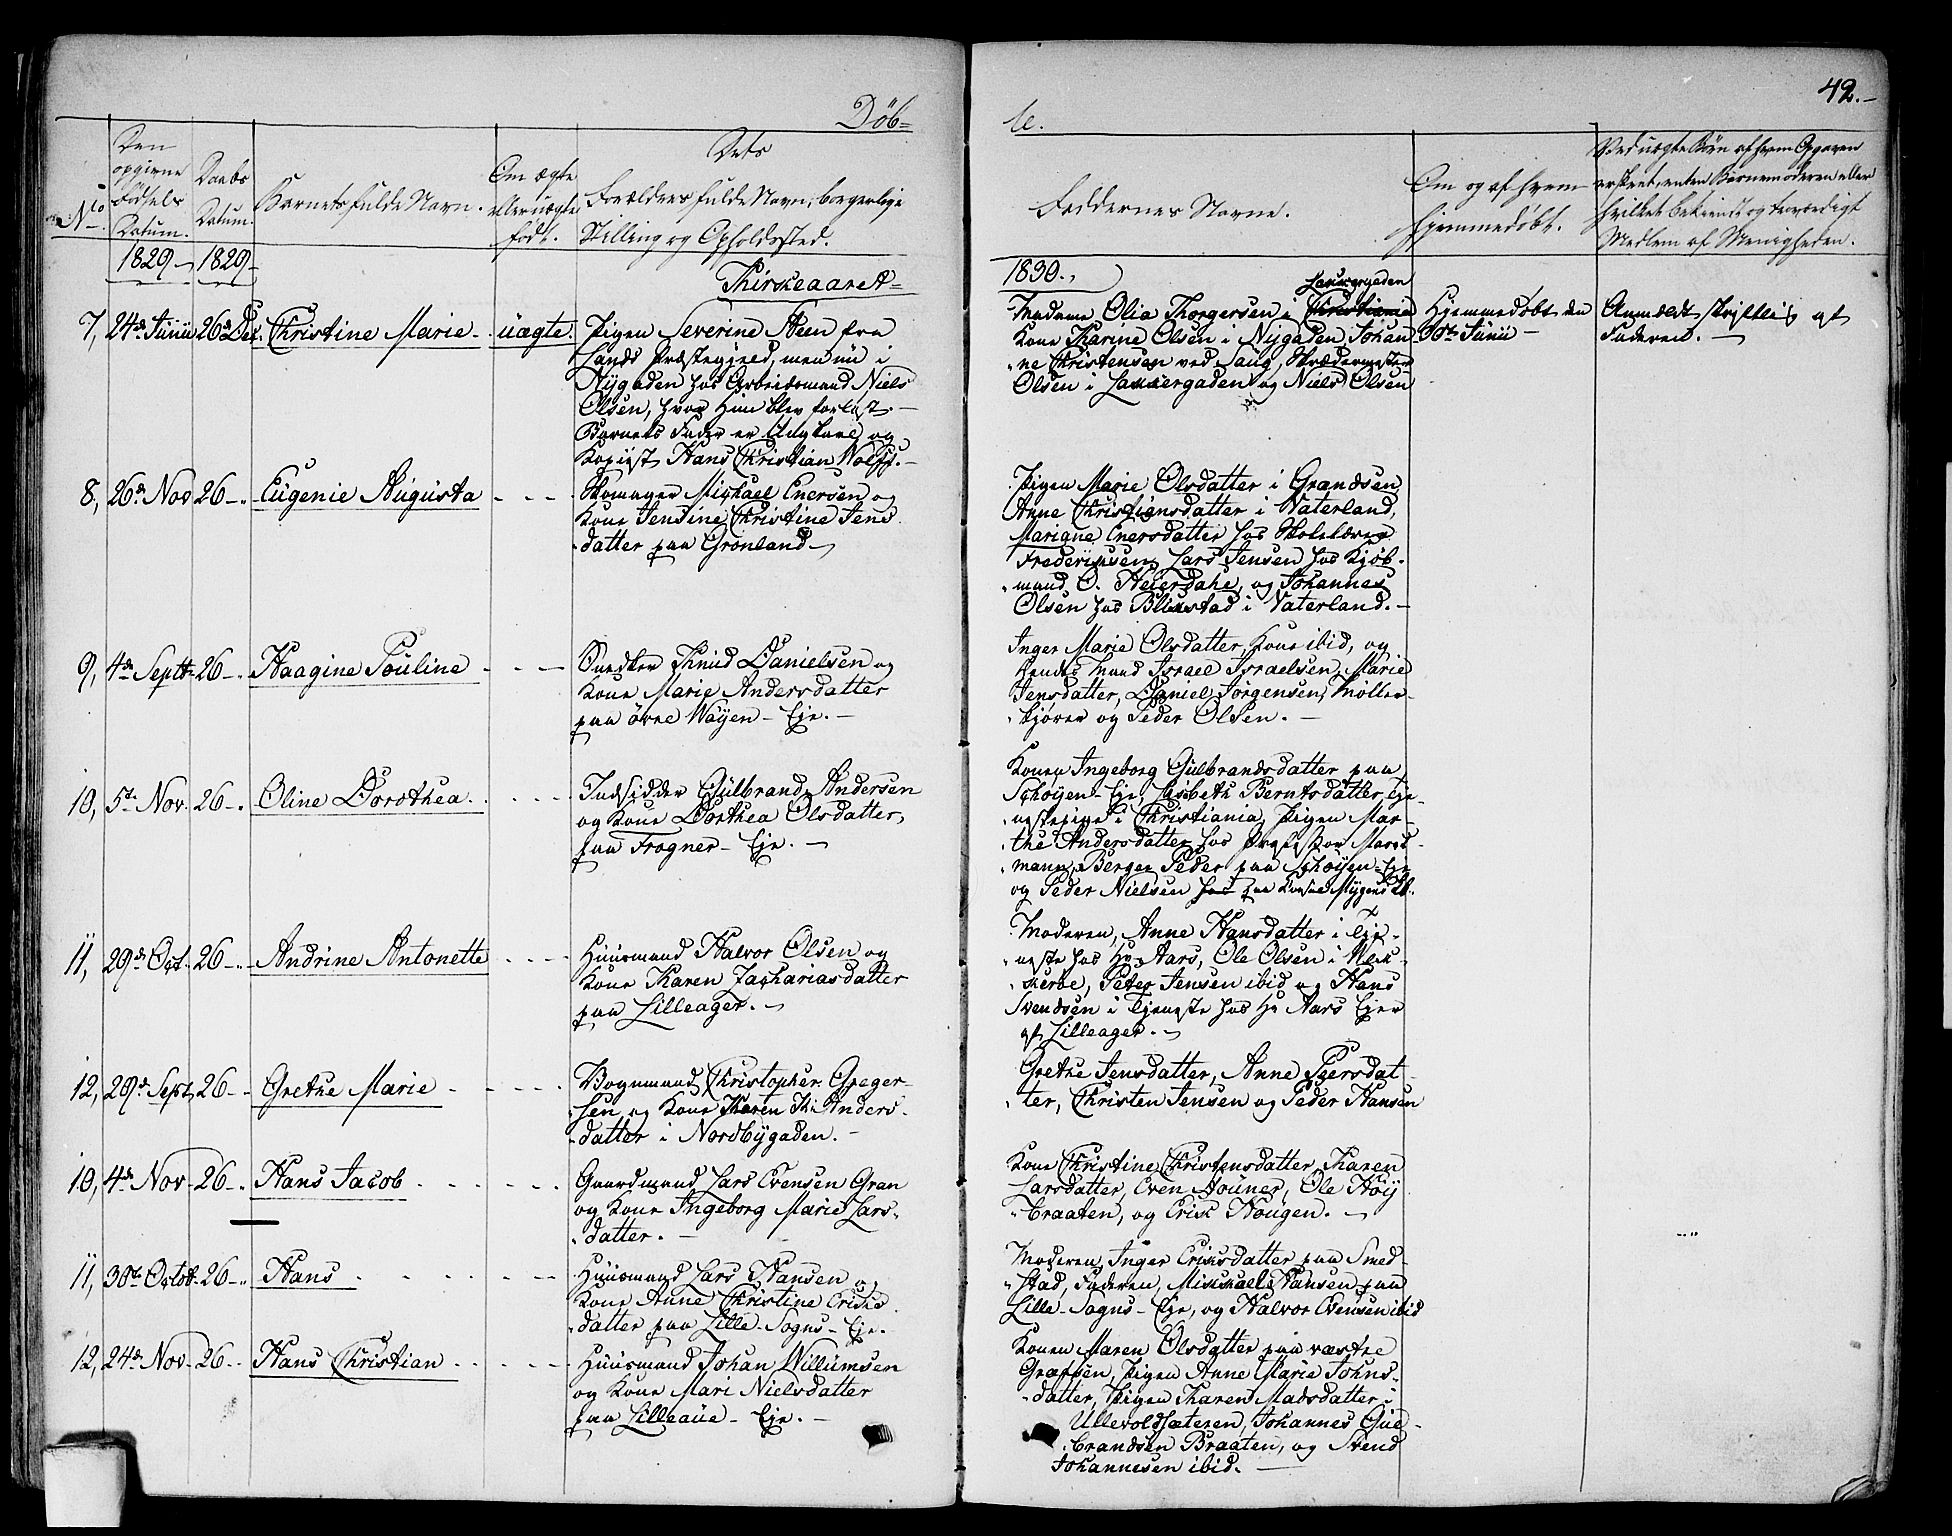 Döb=
te.
42.-
No
Den opgivne Födsels Datum.
Daabs Datum.
Barnets fulde Navn.
Om ægte eller uægte födt.
Dets Forældres fulde Navn, borgerlige Stilling og Opholdssted.
Faddernes Navne.
Om og af hvem hjemmedöbt.
Ved uægte Börn af hvem Opgaven er skeet, enten Barnemoderen eller hvilket bekiendt og troværdigt Medlem af Menigheden.
1829 - 1829 -
Kirkeaaret =
1830.,
7, 24de Junii 26 Dec. Christine Marie - uægte.
Pigen Severine Steen fra
Lands Præstegjeld, men nu i
Nygaden hos Arbeidsmand Niels
Olsen, hvor hun blev forløst. -
Barnets Fader er Ungkarl og
Kopiist Hans Christian Wolff. -
Lakkergaden
Madame Olia Thorgersen i Christiania
Kone Karine Olsen i Nygaden, Johan
ne Christensen ved Saug, Skrædermester
Olsen i Lakkergaden og Niels Olsen
Hjemmedöbt den
30te Junii -
Anmeldt skriftlig af
Faderen. -
8, 26de Nov 26 - Eugenie Augusta - - -
Skomager Michael Enersen og
Kone Jensine Christine Jens
datter paa Grönland -
Pigen Marie Olsdatter i Grændsen
Anne Christiansdatter i Vaterland,
Mariane Enersdatter hos Skolelærer
Frederiksen, Lars Jensen hos Kjöb-
mand O. Heierdahl, og Johannes
Olsen hos Blikstad i Vaterland. -
9, 4de Septr 26 - Haagine Pouline - - -
Snedker Knud Danielsen og
Kone Marie Andersdatter
paa övre Wöyen - Eje. -
Inger Marie Olsdatter, Kone ibid, og
hendes Mand Israel Israelsen, Marie
Jensdatter, Daniel Jörgensen, Möller-
kjörer og Peder Olsen. -
10, 5te Nov. 26 - Oline Dorothea. - - -
Indsidder Gulbrand Andersen
og Kone Dorthea Olsdatter,
paa Frogner - Eje. -
Konen Ingeborg Gulbrandsdatter paa
Schöyen - Eje, Lisbeth Berntsdatter, tje-
nestepige i Christiania, Pigen Mar-
the Andersdatter hos
mann, Berger Peder paa Schöyen - Eje
og Peder Nielsen hos paa
11, 29de Oct. 26 - Andrine Antonette - - -
Huusmand Halvor Olsen og
Kone Karen Zachariasdatter
paa Lilleager. -
Moderen, Anne Hansdatter i Tje-
neste hos Hr Aars, Ole Olsen i Mek-
kerbe, Peter Jensen ibid og Hans
Svendsen i Tjeneste hos Hr Aars Ejer
af Lilleager. -
12, 29de Sept, 26 - Grethe Marie - - -
Vognmand Christopher Greger-
sen og Kone Karen K: Anders-
datter i Nordbygaden. -
Grethe Jensdatter, Anne Peersdat-
ter, Christen Jensen og Peder Hansen
10, 4de Nov - 26 - Hans Jacob - - -
Gaardmand Lars Evensen Gran
og Kone Ingeborg Marie Lars-
datter. -
Kone Christine Christensdatter, Karen
Larsdatter, Even Aouner, Ole Höy
braaten, og Erik Hougen. -
11, 30te Octob. 26 - Hans - - -
Huusmand Lars Hansen og
Kone Anne Christine Eriks
datter paa Lille - Sogns - Eje.
Moderen, Inger Eriksdatter paa Smed-
stad, Faderen, Mikkael Hansen paa
Lille - Sogns - Eje, og Halvor Evensen ibid
12, 24de Nov - 26 - Hans Christian - - -
Huusmand Johan Willumsen
og Kone Mari Nielsdatter
paa Lilleaue - Eje. -
Konen Maren Olsdatter paa væstre
Grafsen, Pigen Anne Marie Johns-
datter, Pigen Karen Madsdatter i
Ullevoldsæteren, Johannes Gul-
brandsen Braaten, og Svend
Johannesen ibid. -